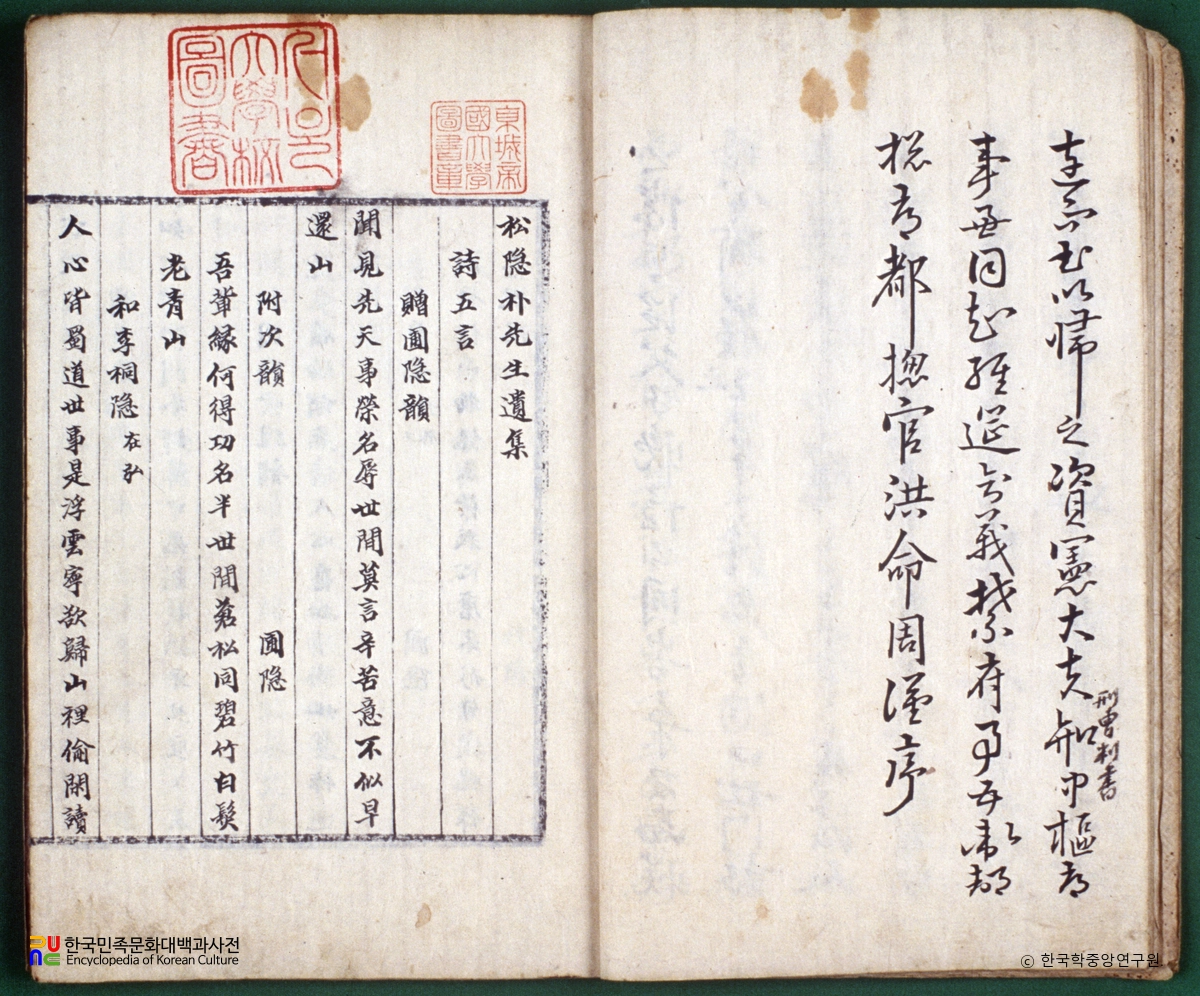 以歸之資憲大夫知中樞府
刑曹判書
事兼同知經筵義禁府事五衛都
摠府都摠官洪命周謹序
京城帝
國大學
圖書章
大學校
圖書
松隐朴先生遺集
詩五言
贈圃隐韻
聞見先天事榮名辱世間莫言辛苦意不似早
還山
附次韻 圃隐
吾軰緣何得功名半世間蒼松同碧竹白髮
老青山
和李桐隐 在弘
人心皆蜀道世事是浮雲寧欲歸山裡偷閑讀
한국민족문화대백과사전
Encyclopedia of Korean Culture
ⓒ 한국학중앙연구원